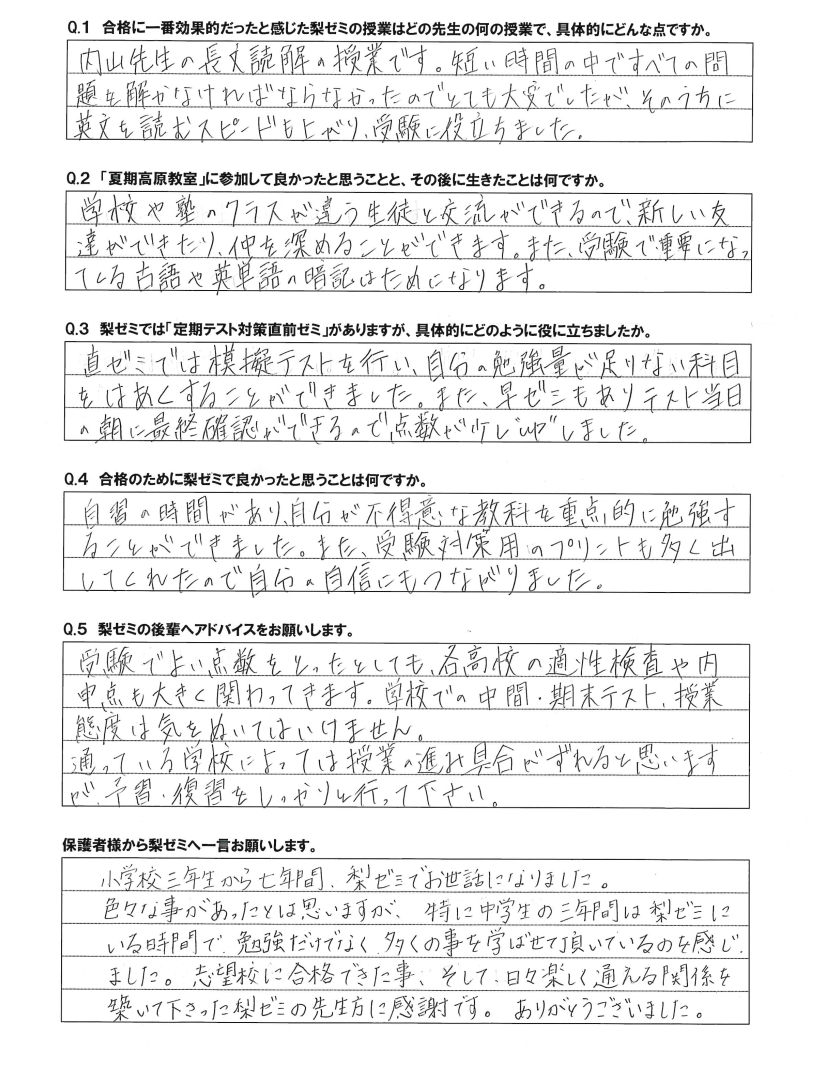 Q.1 合格に一番効果的だったと感じた梨ゼミの授業はどの先生の何の授業で、具体的にどんな点ですか。
内山先生の長文読解の授業です。短い時間の中ですべての問
題を解かなければならなかったのでとても大変でしたが、そのうちに
英文を読むスピードも上がり、受験に役立ちました。
Q.2 「夏期高原教室」に参加して良かったと思うことと、その後に生きたことは何ですか。
学校や塾のクラスが違う生徒と交流ができるので、新しい友
達ができたり、仲を深めることができます。また、受験で重要になっ
ている古語や英単語の暗記はためになります。
Q.3 梨ゼミでは「定期テスト対策直前ゼミ」がありますが、具体的にどのように役に立ちましたか。
直ゼミでは模擬テストを行い、自分の勉強量が足りない科目
をはあくすることができました。また、早ゼミもありテスト当日
の朝に最終確認ができるので点数が少しupしました。
Q.4 合格のために梨ゼミで良かったと思うことは何ですか。
自習の時間があり、自分が不得意な教科を重点的に勉強す
ることができました。また、受験対策用のプリントも多く出
してくれたので自分の自信にもつながりました。
Q.5 梨ゼミの後輩へアドバイスをお願いします。
受験でよい点数をとったとしても、各高校の適性検査や内
申点も大きく関わってきます。学校での中間・期末テスト、授業
態度は気をぬいてはいけません。
通っている学校によっては授業の進み具合がずれると思います
が、予習・復習をしっかりと行って下さい。
保護者様から梨ゼミへ一言お願いします。
小学校三年生から七年間、梨ゼミでお世話になりました。
色々な事があったとは思いますが、特に中学生の三年間は梨ゼミに
いる時間で、勉強だけでなく、多くの事を学ばせて頂いているのを感じ
ました。志望校に合格できた事、そして、日々楽しく通える関係を
築いて下さった梨ゼミの先生方に感謝です。ありがとうございました。